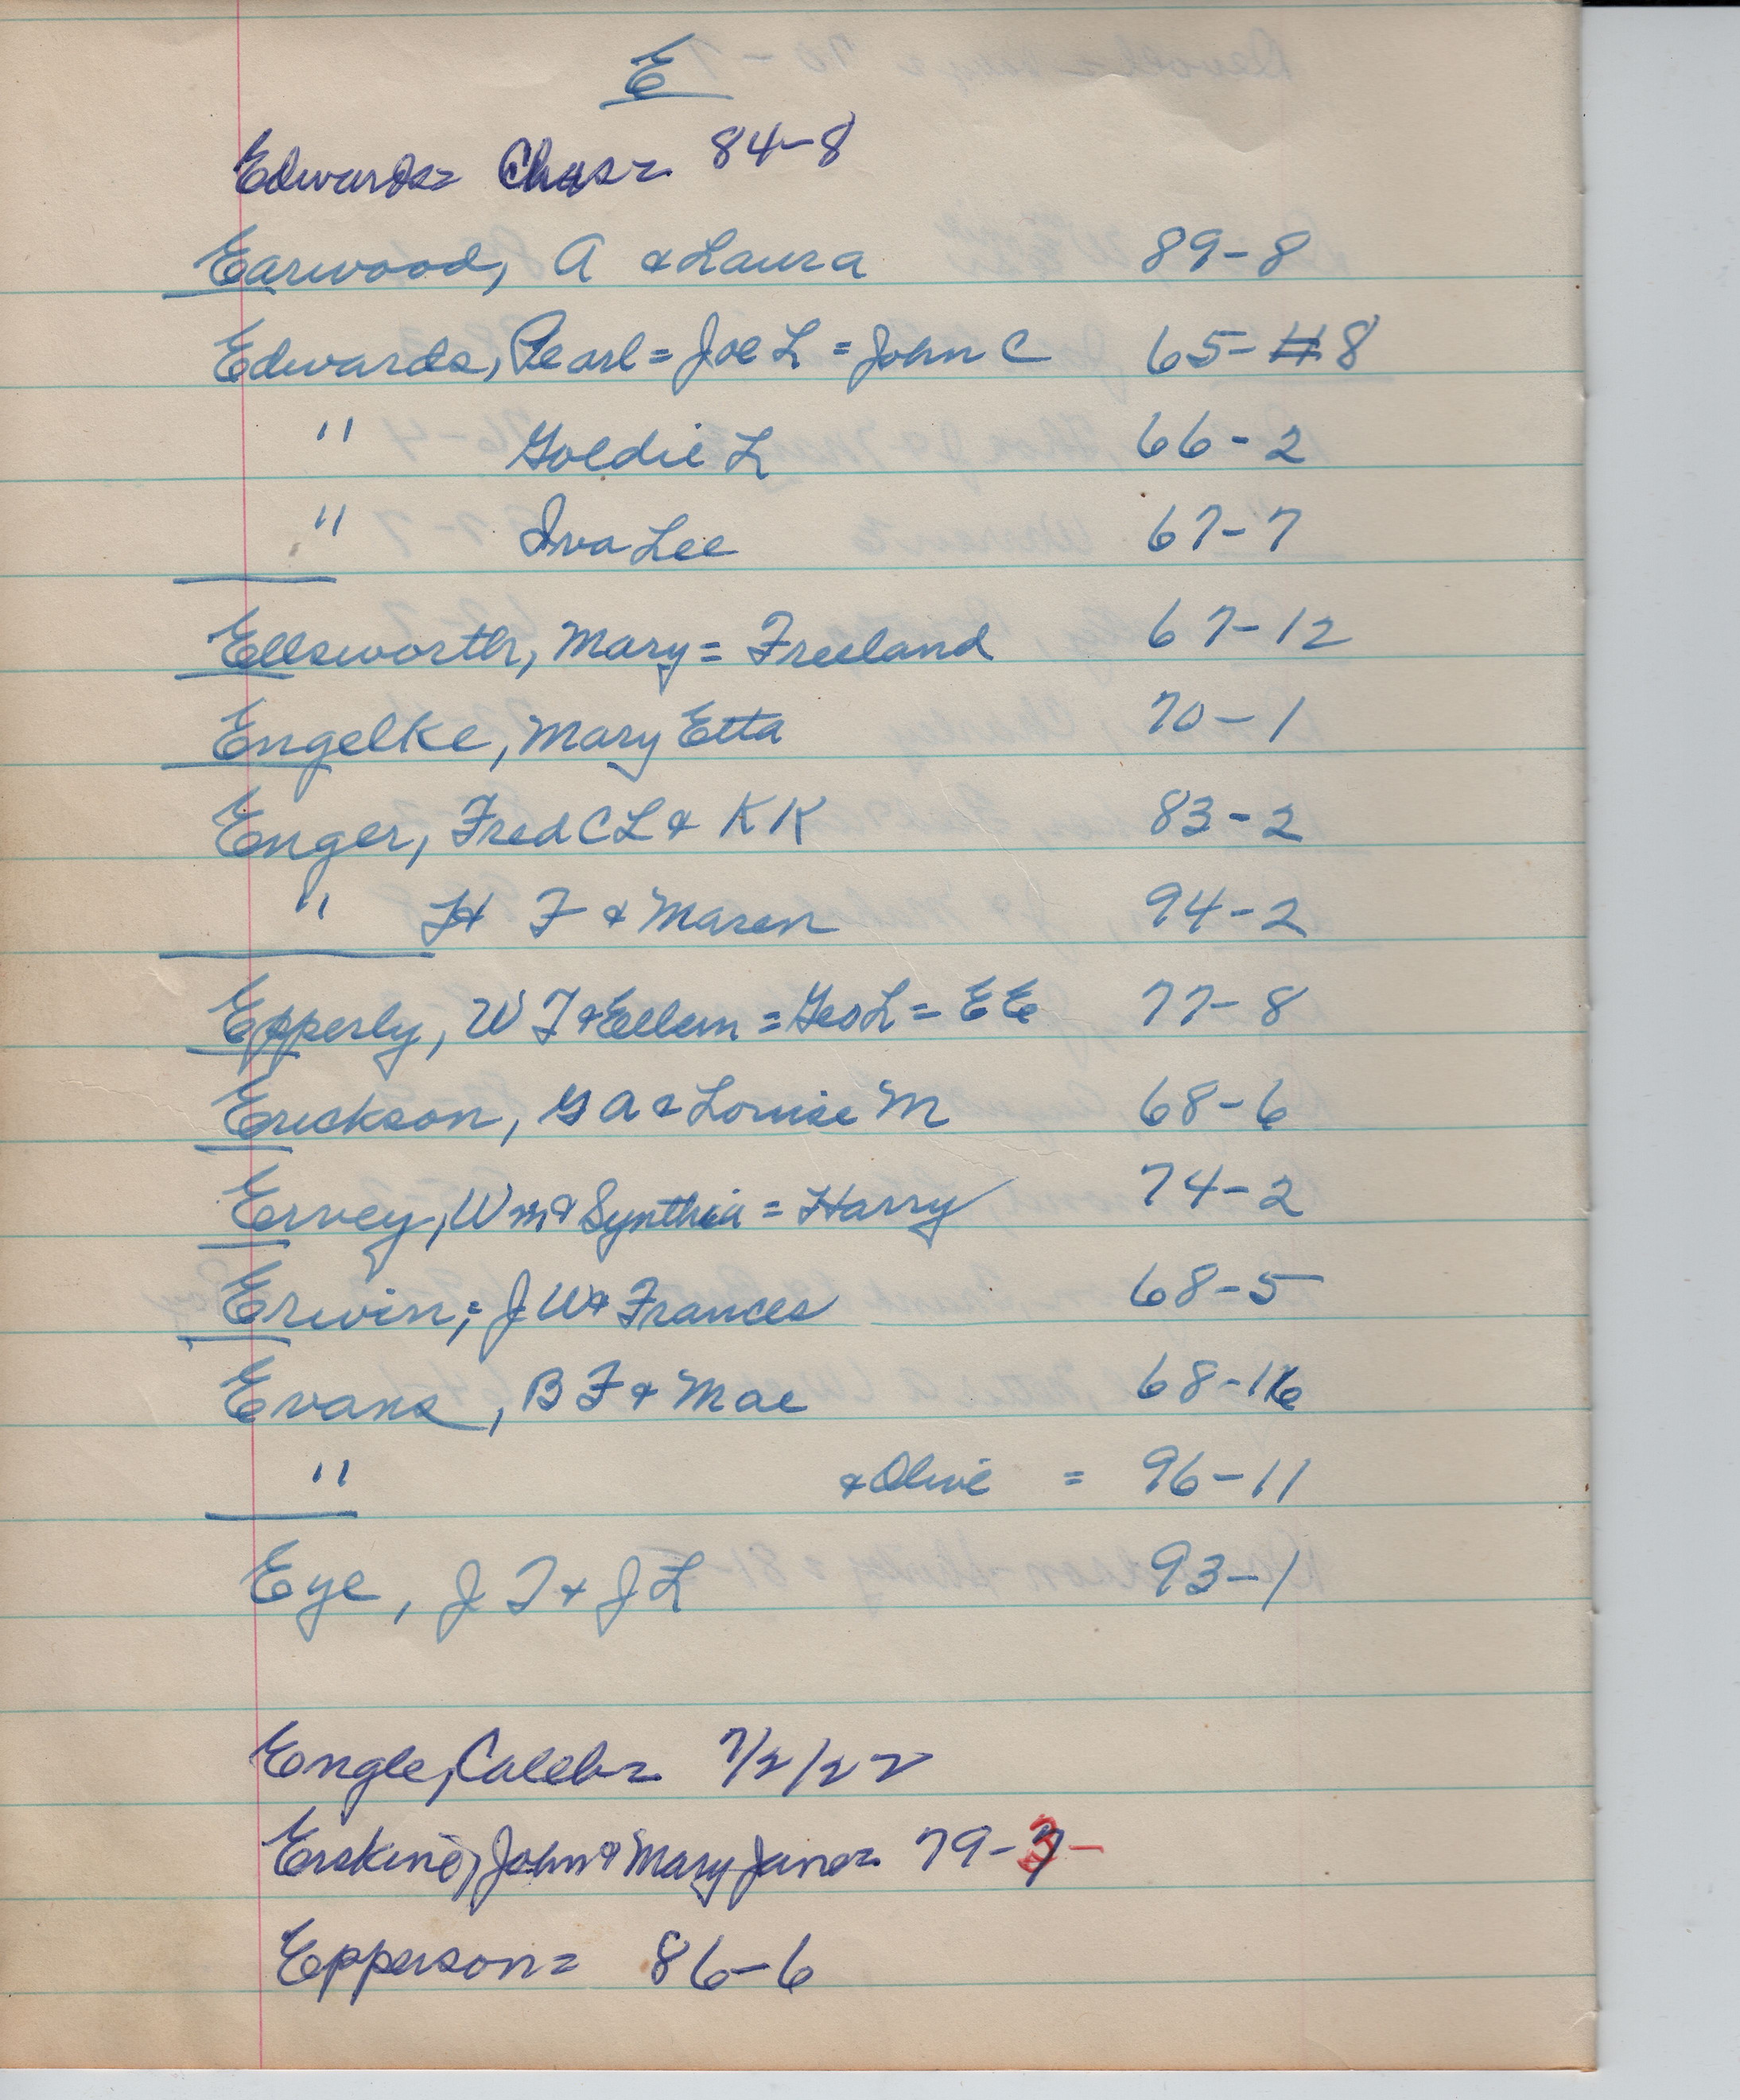 E
Edwards= Chas= 84-8
Earwood, A & Laura 89-8
Edwards, Pearl = Joe L = John C 65-#8
" Goldie L 66-2
" Iva Lee 67-7
Ellsworth, Mary = Freeland 67-12
Engelke, Mary Etta 70-1
Enger, Fred C L & K K 83-2
" H F & Maren 94-2
Epperly, W T & Ellem = Geo L = E E 77-8
Erickson, G A & Louise M 68-6
Ervey, Wm & Synthia = Harry 74-2
Erwin; J W & Frances 68-5
Evans, B F & Mae 68-16
" & Olive = 96-11
Eye, J T & J L 93-1
Engle, Caleb= 7/2/22
Erskine, John & Mary Jane= 79-3-
Epperson= 86-6